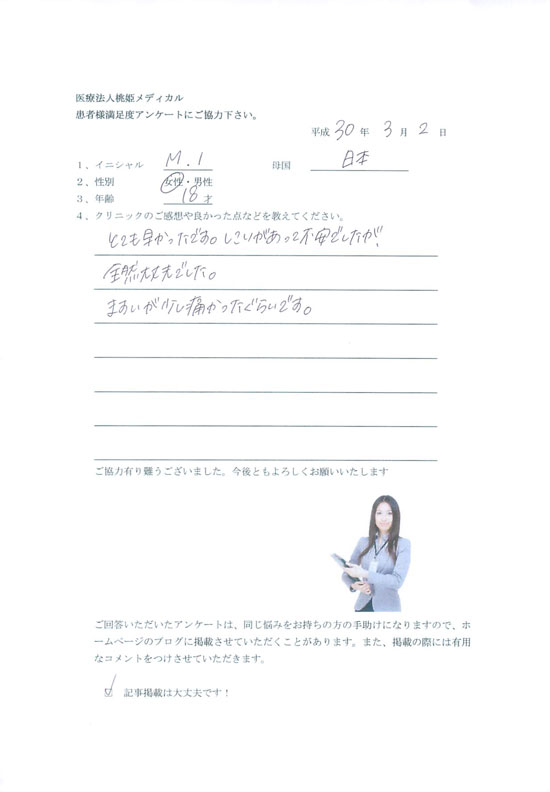 医療法人桃姫メディカル
患者様満足度アンケートにご協力下さい。
平成 30 年 3 月 2 日
1、イニシャル M.I 母国 日本
2、性別 女性・男性
3、年齢 18 才
4、クリニックのご感想や良かった点などを教えてください。
とても早かったです。しこりがあって不安でしたが、
全然大丈夫でした。
ますいが少し痛かったぐらいです。
ご協力有り難うございました。今後ともよろしくお願いいたします
ご回答いただいたアンケートは、同じ悩みをお持ちの方の手助けになりますので、ホ
ームページのブログに掲載させていただくことがあります。また、掲載の際には有用
なコメントをつけさせていただきます。
☑ 記事掲載は大丈夫です！